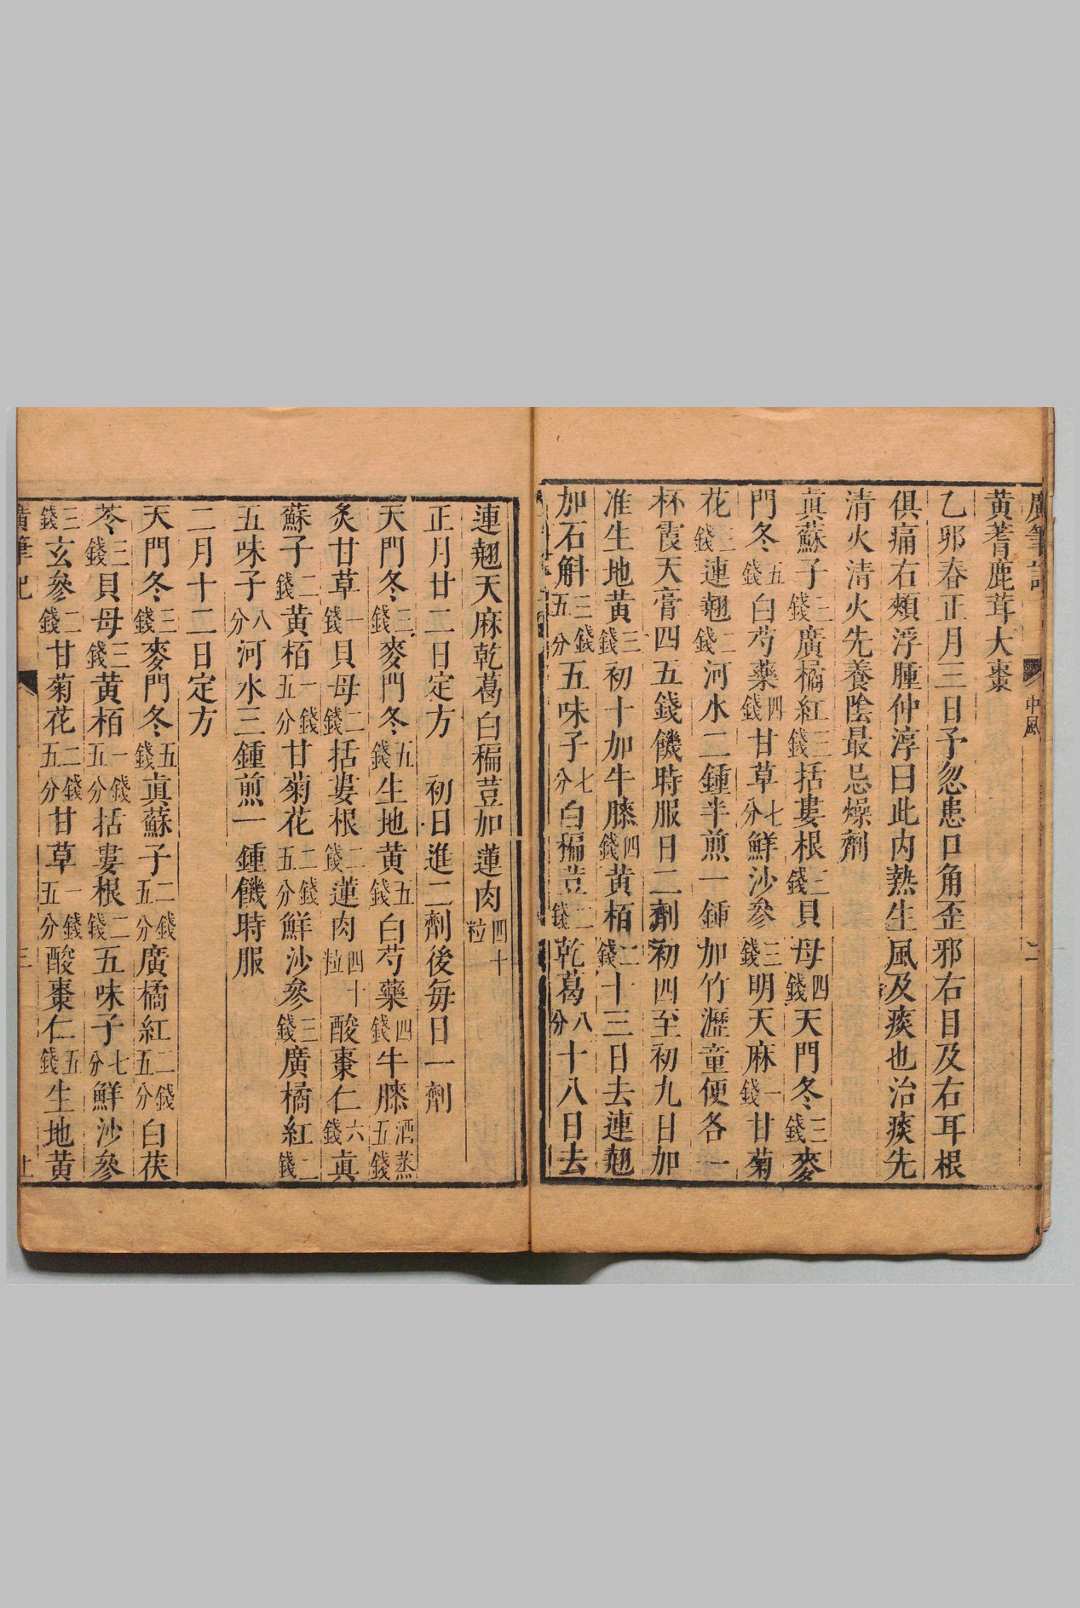 黃耆鹿茸大棗
乙邪春正月三日予忽患口角歪邪右目及右耳根
俱痛右頰浮腫仲淳曰此内熱生風及痰也治痰先
清火清火先養陰最忌燥劑
真蘇子三錢廣橘紅三錢括蔞根三錢貝母四錢天門冬三錢麥
門冬五錢白芍藥四錢甘草七分鮮沙參三錢明天麻一錢甘菊
花三錢連翹二錢河水二鍾半煎一鍾加竹瀝童便各一
杯霞天膏四五錢饑時服日二劑初四至初九日加
准生地黃三錢初十加牛膝四錢黃栢二錢十三日去連翹
加石斛三錢五分五味子七分白稨荳二錢乾葛八分十八日去
連翹天麻乾葛白稨荳加蓮肉四十粒
正月廿二日定方 初日進二劑後每日一劑
天門冬三錢麥門冬五錢生地黃五錢白芍藥四錢牛膝酒蒸五錢
炙甘草一錢貝母二錢括蔞根二錢蓮肉四十粒酸棗仁六錢真
蘇子二錢黃栢一錢五分甘菊花二錢五分鮮沙參三錢廣橘紅二錢
五味子八分河水三鍾煎一鍾饑時服
二月十二日定方
天門冬三錢麥門冬五錢真蘇子二錢五分廣橘紅二錢五分白茯
苓三錢貝母三錢黃栢一錢五分括蔞根二錢五味子七分鮮沙參
三錢玄參二錢甘菊花二錢五分甘草一錢五分酸棗仁五錢生地黃
廣筆記
中風
二